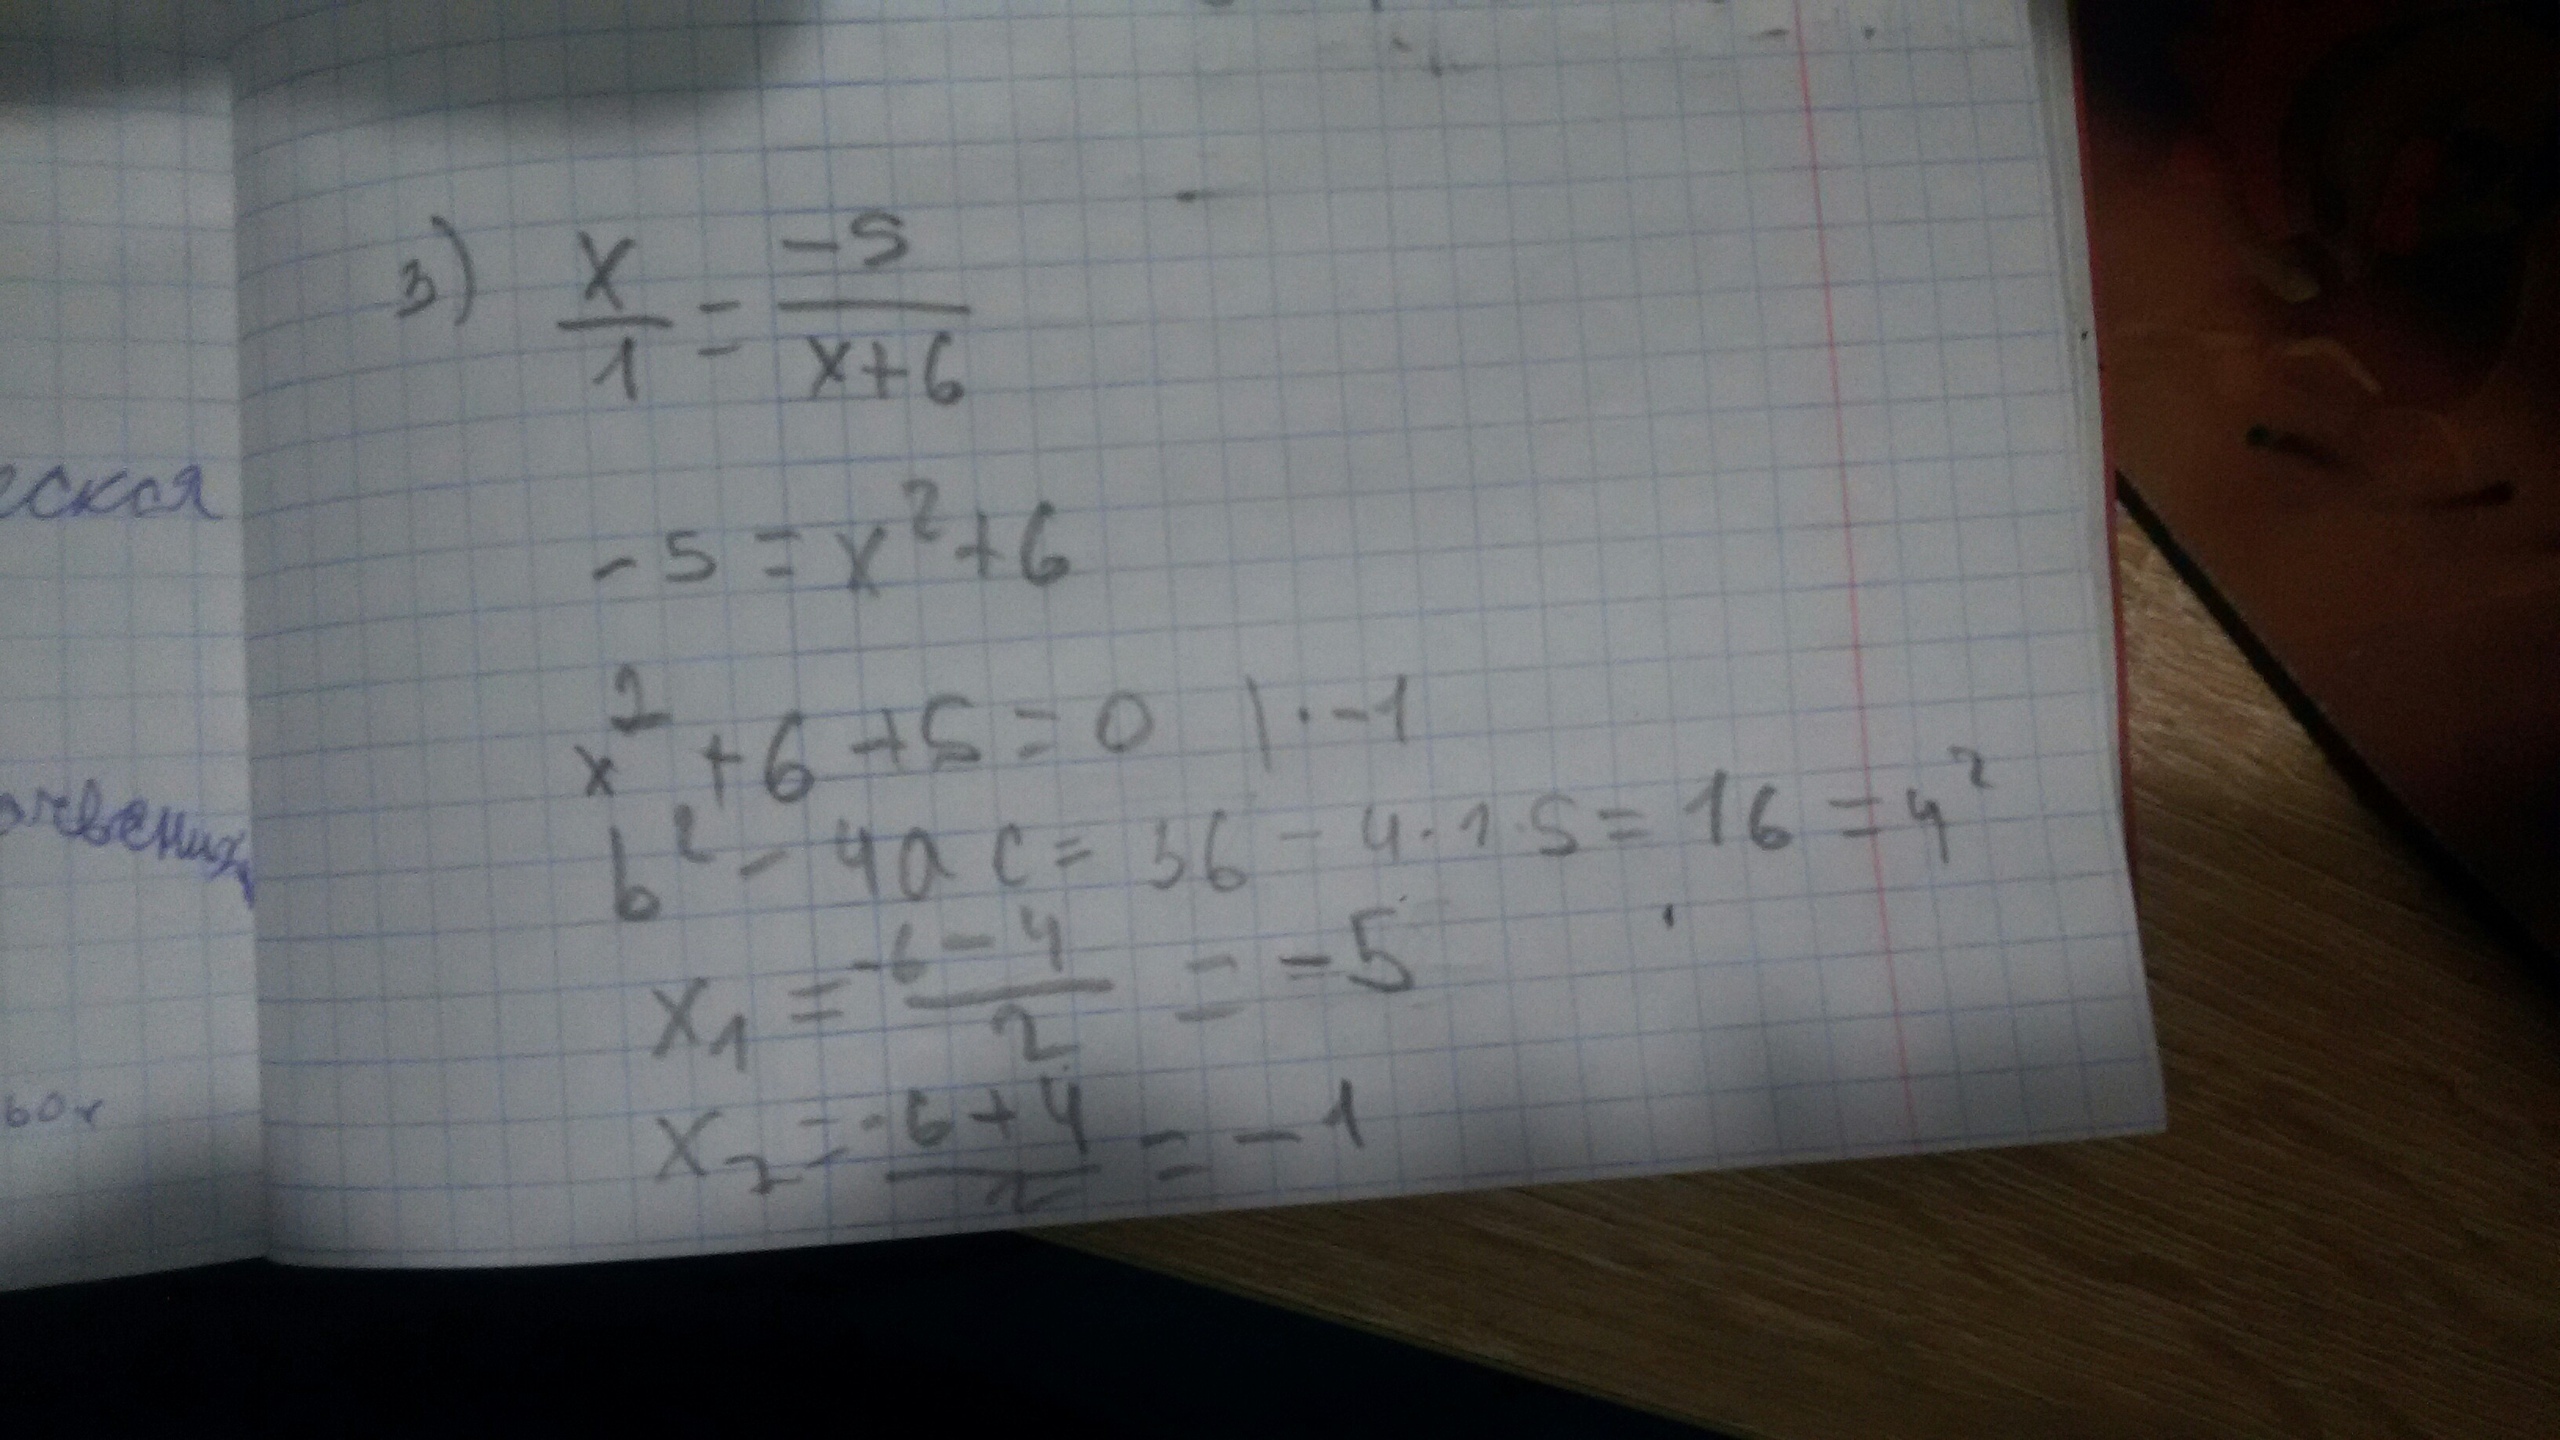 еская
3) x/1 = -5/(x+6)
-5 = x² + 6
x² + 6 + 5 = 0 | · -1
b² - 4ac = 36 - 4 · 1 · 5 = 16 = 4²
x₁ = (-6 - 4)/2 = -5
x₂ = (-6 + 4)/2 = -1